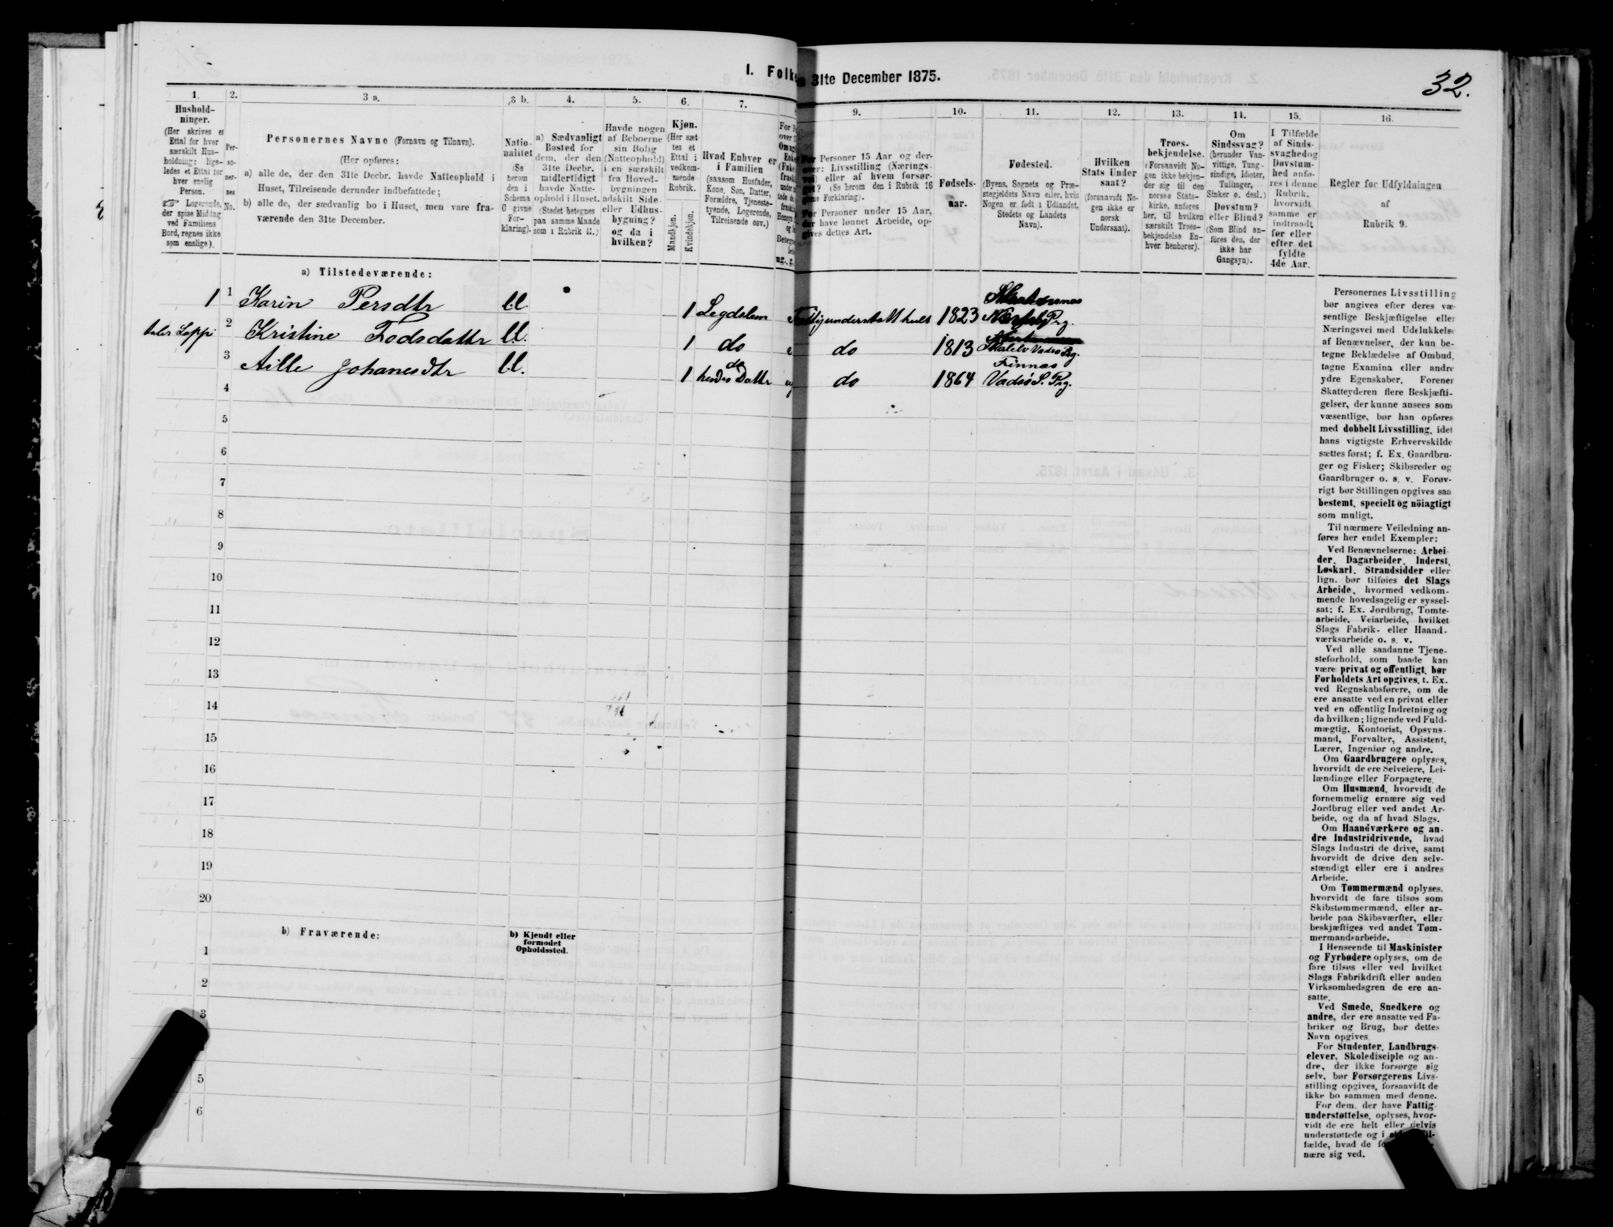 1. Folke
n 31te December 1875.
32.
1.
2.
3 a.
3 b.
4.
5.
6.
7.
9.
10.
11.
12.
13.
14.
15.
16.
Hushold-
ninger.
(Her skrives et
Ettal for hver
særskilt Hus-
holdning; lige-
ledes et Ettal for
hver enslig
Person.
Logerende,
der spise Middag
ved Familiens
Bord, regnes ikke
som enslige).
Per-
so-
ner-
nes
No.
Personernes Navne (Fornavn og Tilnavn).
(Her opføres:
a) alle de, der den 31te Decbr. havde Natteophold i
Huset, Tilreisende derunder indbefattede;
b) alle de, der sædvanlig bo i Huset, men vare fra-
værende den 31te December.
Natio-
nalitet
(Se
herom
den i
Schema
6 givne
For-
klaring).
a) Sædvanligt
Bosted for
dem, der den
31te Decbr.
midlertidigt
havde Natte-
ophold i Huset.
(Stedet betegnes
paa samme Maade
som i Rubrik 11.)
Havde nogen
af Beboerne
sin Bolig
(Natteophold)
i en særskilt
fra Hoved-
bygningen
adskilt Side-
eller Udhus-
bygning?
og da i
hvilken?
Kjøn.
(Her sæt
tes et
Ettal i
vedkom-
mende
Rubrik.
Mandkjøn.
Kvindekjøn.
Hvad Enhver er
i Familien
(saasom Husfader,
Kone, Søn, Datter,
Forældre, Tjeneste-
tyende, Logerende,
Tilreisende osv.)
For Personer 15 Aar og der-
over: Livsstilling (Nærings-
vei) eller af hvem forsør-
get? (Se herom den i Rubrik 16
givne Forklaring).
For Personer under 15 Aar,
der have lønnet Arbeide, op-
gives dettes Art.
Fødsels-
aar.
Fødested.
(Byens, Sognets og Præ-
stegjeldets Navn eller, hvis
Nogen er født i Udlandet,
Stedets og Landets
Navn).
Hvilken
Stats Under
saat?
(foruanavdt No-
gen ikke er
norsk
Undersaat).
Troes-
bekjendelse.
(Forsaavidt No-
gen ikke bekjen-
der sig til den
norske Stats-
kirke, anføres
her, til hvilken
særskilt Troes-
bekjendelse En-
hver henhører).
Om
Sindssvag?
(herunder Van-
vittige, Tung-
sindige, Idioter,
Tullinger,
Sinker o. desl.)
Døvstum?
eller Blind?
(Som Blind an-
føres den, der
ikke har
Gangsyn).
I Tilfælde
af Sinds-
svaghed og
Døvstum-
hed anfø-
res i denne
Rubrik,
hvorvidt
samme er
indtraadt
før eller
efter det
fyldte
4de Aar.
Regler for Udfyldningen
af
Rubrik 9.
a) Tilstedeværende:
1 1 Karin Persdtr ll 1 Legdslem Fattigunderstøttelse 1823
2 Kristine Fodsdatter ll. 1 do do 1813 Vadsø Prg.
3 Aille Johanesdtr ll. 1 hendes Datter do 1864 Finnæs Vadsø S. Prg.
4
5
6
7
8
9
10
11
12
13
14
15
16
17
18
19
20
b) Fraværende:
b) Kjendt eller
formodet
Opholdssted.
1
2
3
5
6
Personernes Livsstilling
bør angives efter deres væ-
sentlige Beskjæftigelse eller
Næringsvei med Udelukkelse
af Benævnelser, der kun be-
tegne Beklædelse af Ombud,
tagne Examina eller andre
ydre Egenskaber. Forener
Skatteyderen flere Beskjæfti-
gelser, der kunne ansees som
væsentlige, bør han opføres
med dobbelt Livsstilling, idet
hans vigtigste Erhvervskilde
sættes først; f. Ex. Gaardbru-
ger og Fisker; Skibsreder og
Gaardbruger o. s. v. Forøv-
rigt bør Stillingen opgives saa
bestemt, specielt og nöiagtigt
som muligt.
Til nærmere Veiledning an-
føres her endel Exempler:
Ved Benævnelserne: Arbei-
der, Dagarbeider, Inderst,
Løskarl, Strandsidder eller
lign. bør tilføies det Slags
Arbeide, hvormed vedkom-
mende hovedsagelig er syssel-
sat; f. Ex. Jordbrug, Tomte-
arbeide, Veiarbeide, hvilket
Slags Fabrik- eller Haand-
værksarbeide o. s. v.
Ved alle saadanne Tjene-
steforhold, som baade kan
være privat og offentligt, bør
Forholdets Art opgives, t. Ex.
ved Regnskabsførere, om de
ere ansatte ved en privat eller
ved en offentlig Indretning og
da hvilken; lignende ved Fuld-
mægtig, Kontorist, Opsyns-
mand, Forvalter, Assistent,
Lærer, Ingeniør og andre.
Om Gaardbrugere oplyses,
hvorvidt de ere Selveiere, Lei-
lændinge eller Forpagtere.
Om Husmænd, hvorvidt de
fornemmelig ernære sig ved
Jordbrug eller ved andet Ar-
beide, og da af hvad Slags.
Om Haandværkere og an-
dre Industridrivende, hvad
Slags Industri de drive, samt
hvorvidt de drive den selv-
stændigt eller ere i andres
Arbeide.
Om Tømmermænd oplyses,
hvorvidt de fare tilsøs som
Skibstømmermænd, eller ar-
beide paa Skibsværfter, eller
beskjæftiges ved andet Tøm-
mermandsarbeide.
I Henseende til Maskinister
og Fyrbødere oplyses, om de
fare tilsøs eller ved hvilket
Slags Fabrikdrift eller anden
Virksomhedsgren de ere an-
satte.
Ved Smede, Snedkere og
andre, der ere ansatte ved Fa-
briker og Brug, bør dettes
Navn opgives
For Studenter, Landbrugs-
elever, Skoledisciple og an-
dre, der ikke forsørge sig
selv, bør Forsørgerens Livs-
stilling opgives, forsaavidt de
ikke bo sammen med denne.
For dem, der have Fattig-
understøttelse, oplyses, hvor-
vidt de ere helt eller delvis
understøttede og i
fælde, hvad de
nære sig ved.